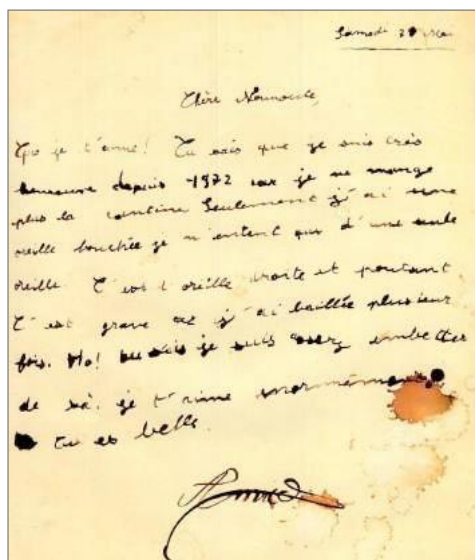 Samedi
Chère Nounoute,
je t'aime! Tu sais que je suis très
heureuse depuis 1972 car je ne mange
plus la cantine Seulement j'ai une
oreille bouchée je n'entent que d'une seule
oreille. C'est l'oreille droite et pourtant
C'est grave j'ai baillée plusieur
fois. Ho! tu sais je suis assez embetter
de sà. je t'aime enormement
tu es belle.